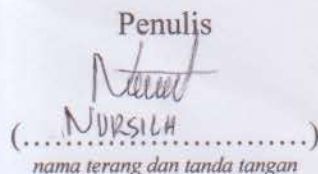 Penulis
NURSILH
(..............................)
nama terang dan tanda tangan